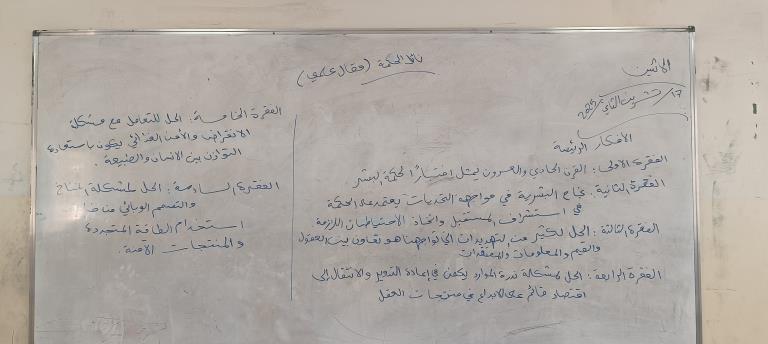 الاثنين
17/ تشرين الثاني/ 2025
الحكمة (مقال علمي)
الأفكار الرئيسة
الفقرة الأولى: القرن الحادي والعشرون يمثل اختباراً لحكمة البشر
الفقرة الثانية: نجاح البشرية في مواجهة التحديات يعتمد على الحكمة
في استشراف المستقبل واتخاذ الاحتياطات اللازمة
الفقرة الثالثة: الحل لكثير من التهديدات التي نواجهها هو تعاون بين العقول
والقيم والمعلومات والمعتقدات
الفقرة الرابعة: الحل لمشكلة ندرة الموارد يكمن في إعادة التدوير والانتقال إلى
اقتصاد قائم على الابداع في منتجات العقل
الفقرة الخامسة: الحل للتعامل مع مشكلة
الانقراض والأمن الغذائي يكون باستعادة
التوازن بين الانسان والطبيعة.
الفقرة السادسة: الحل لمشكلة المناخ
والتسمم الوبائي
استخدام الطاقة المتجددة
والمنتجات الآمنة.